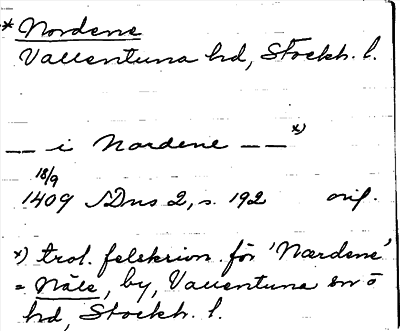 * Nordene
Vallentuna hd, Stockh. l.
— i Nordene — — *)
18/9
1409 SDns 2, s. 192 orig.
*) trol. felskrivn. för 'Nærdene'
= Näle, by, Vallentuna sn o
hd, Stockh. l.